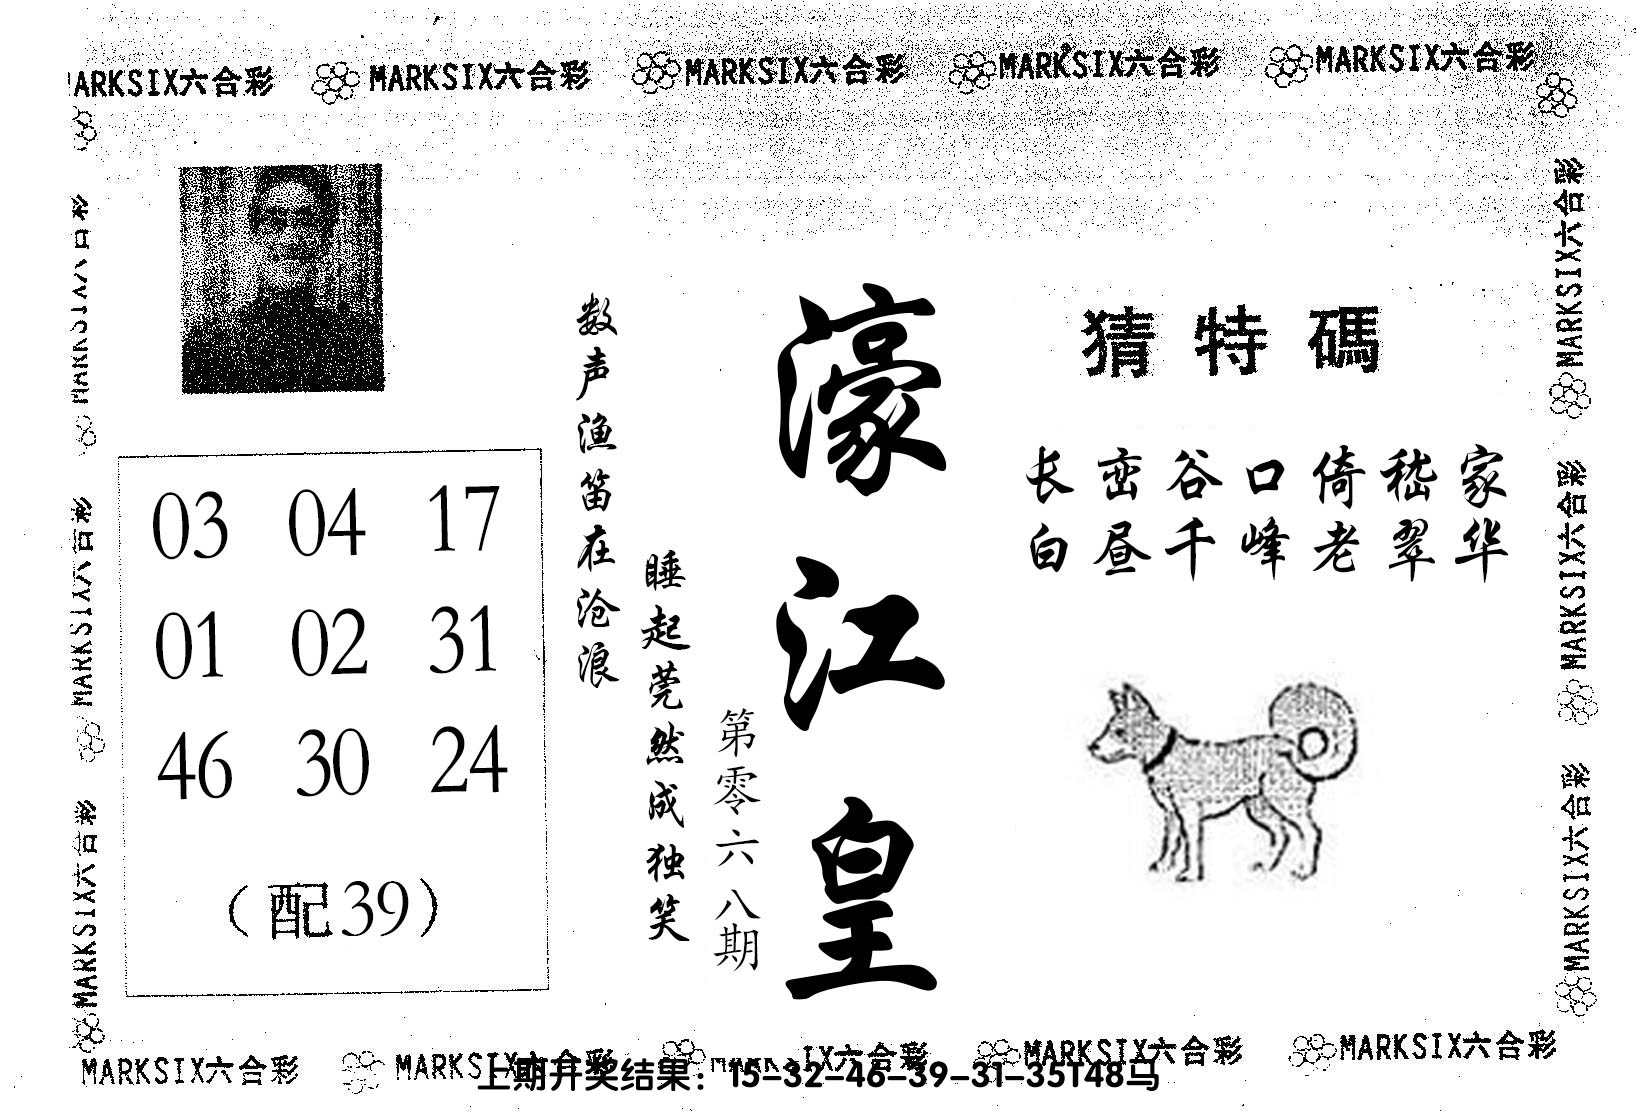 MARKSIX六合彩 MARKSIX六合彩 MARKSIX六合彩 MARKSIX六合彩 MARKSIX六合彩
MARKSIX六合彩
MARKSIX六合彩
MARKSIX六合彩
03 04 17
01 02 31
46 30 24
(配39)
数声渔笛在沧浪
睡起莞然成独笑
第零六八期
濠江皇
猜特碼
长峦谷口倚嵇家
白昼千峰老翠华
MARKSIX六合彩
MARKSIX六合彩
MARKSIX六合彩
MARKSIX六合彩 MARKSIX六合彩 六合彩 MARKSIX六合彩 MARKSIX六合彩
上期开奖结果：15-32-46-39-31-35T48马